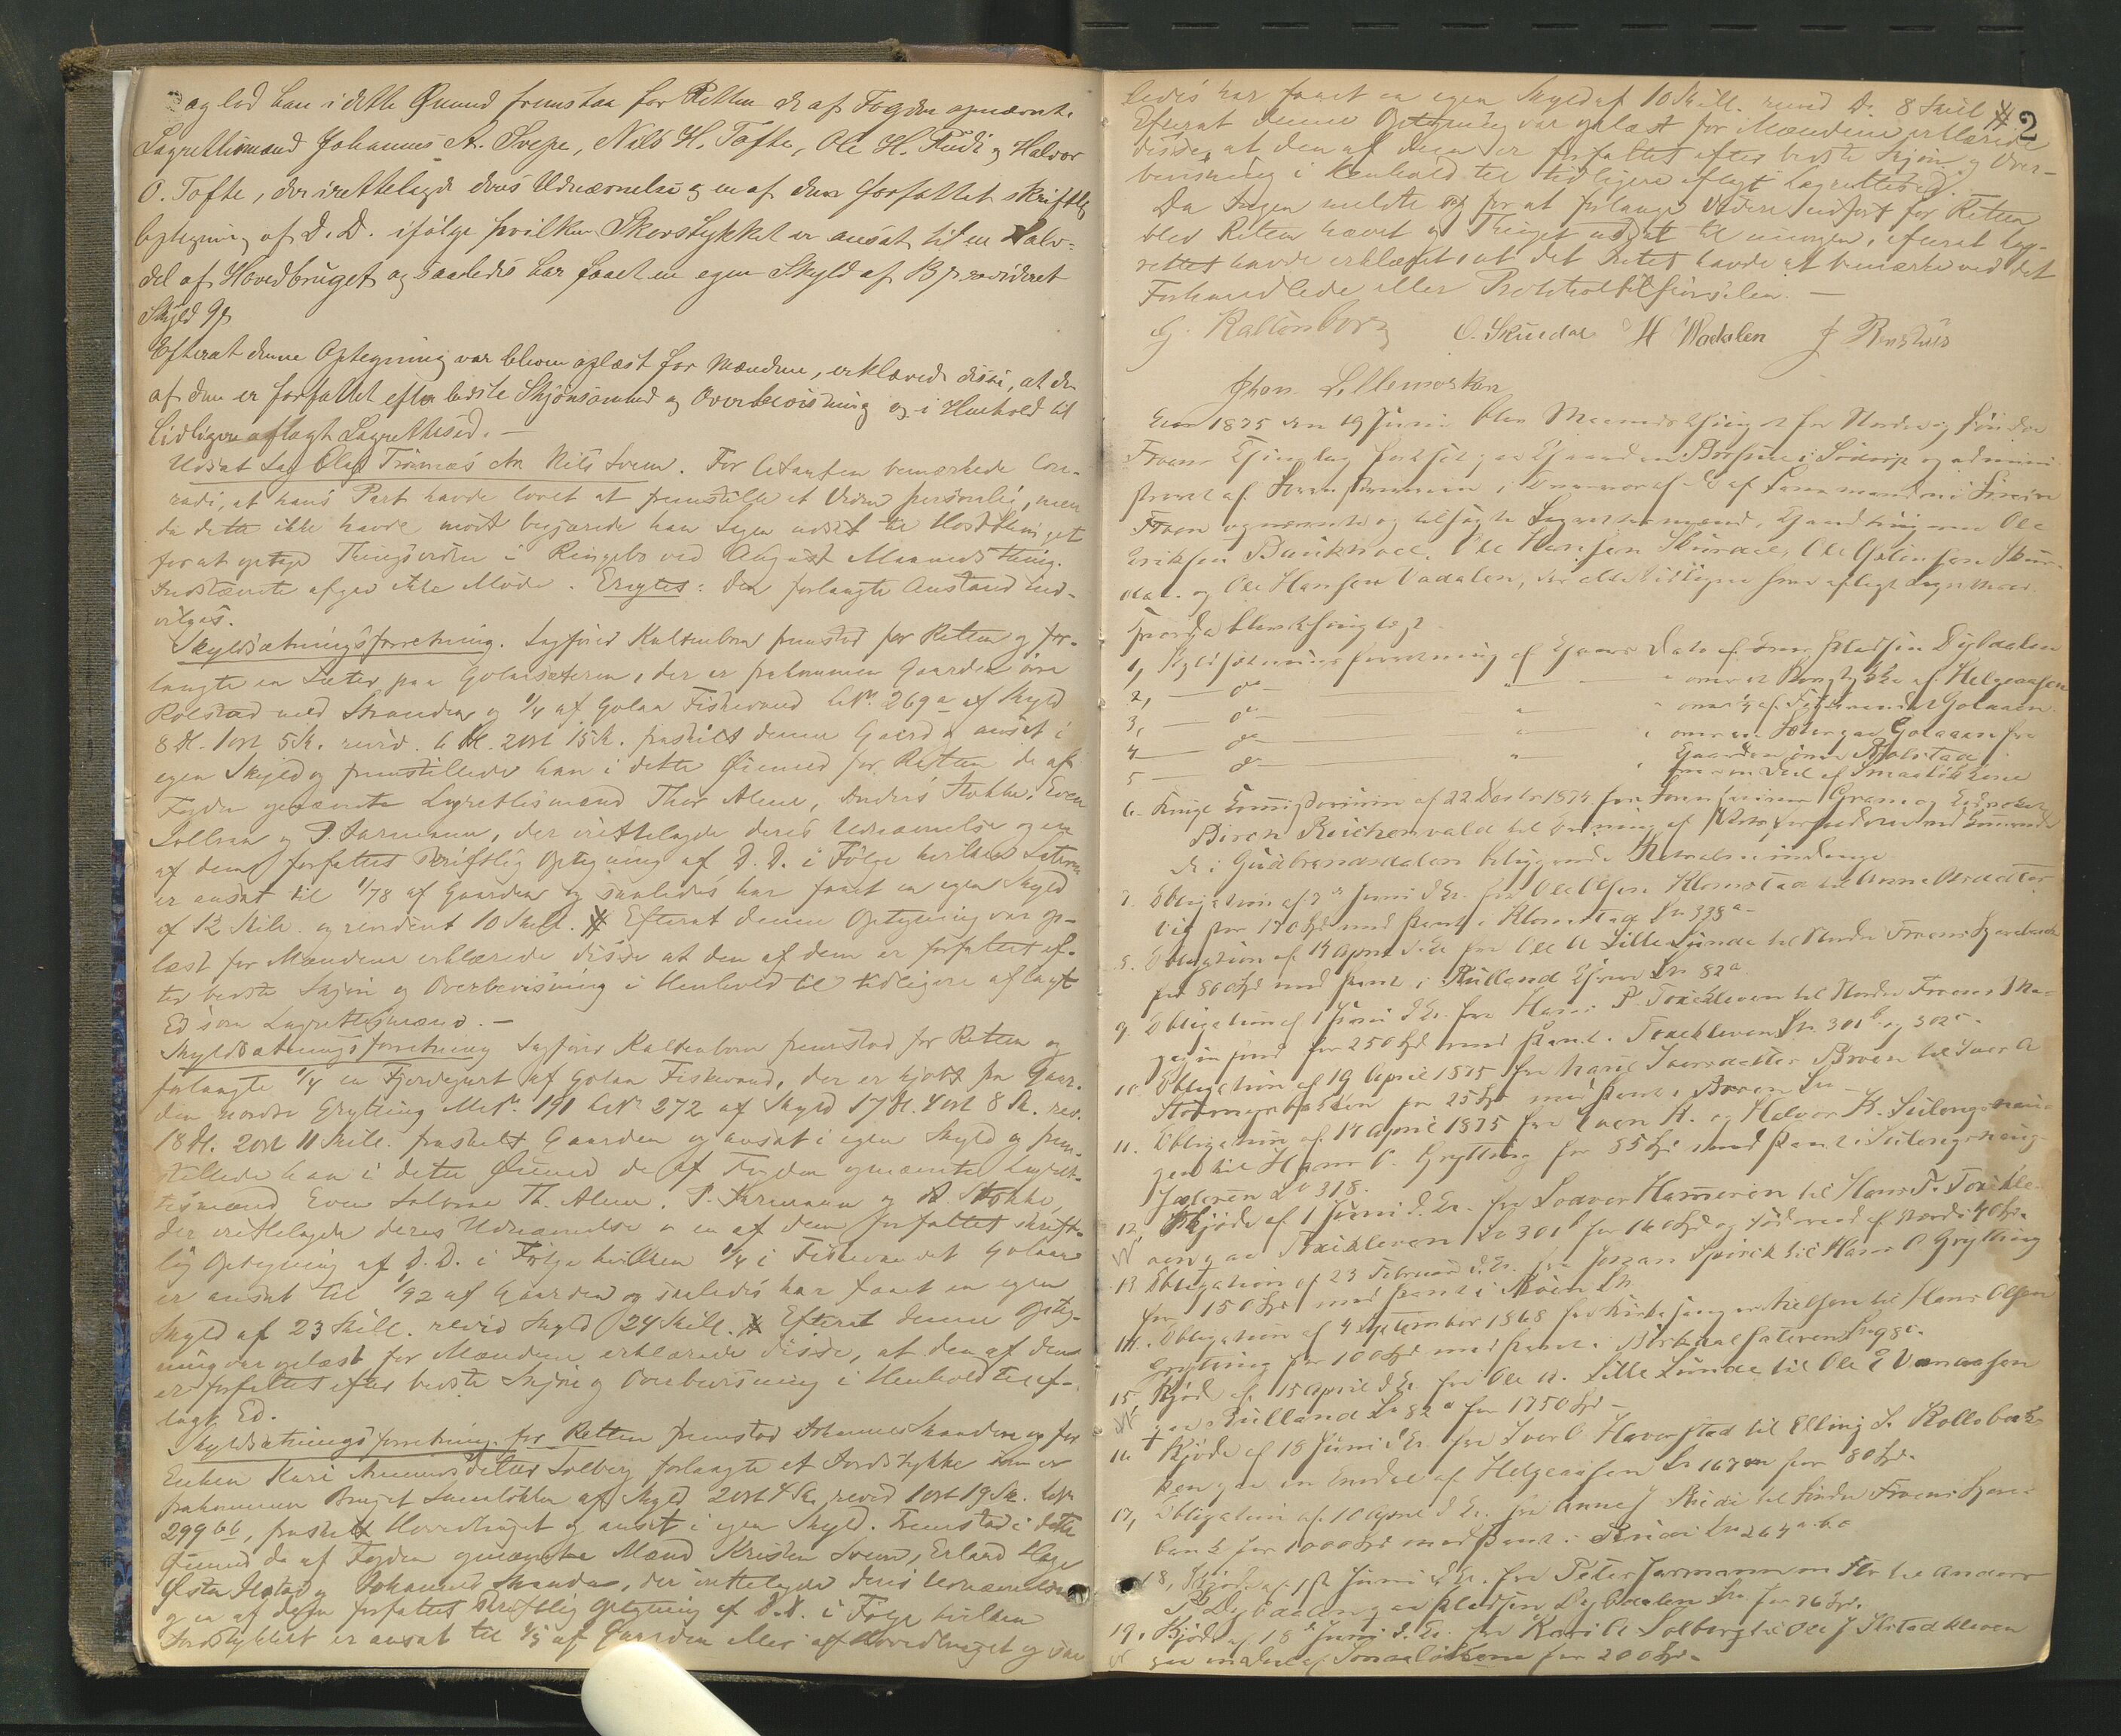 og lod han i dette Øiemed fremstaa for Retten de af Fogden opnævnte
Lagrettismænd Johannes A. Svepe, Nils H. Tofte, Ole H. Rudi og Halvor
O. Tofte, der irettelagde deres Udnævnelse og en af dem forfattet skriftlig
Optegning af D. D. ifølge hvilken Skovstykket er ansat til en Halv-
del af Hovedbruget og saaledes har faaet en egen Skyld af 13 β revideret
Skyld 9 β
Efterat denne Optegning var bleven oplæst for Mændene, erklærede disse, at den
af dem er forfattet efter bedste Skjønsomhed og Overbevisning og i Henhold til
tidligere aflagt Lagrettesed. —
Udsat Sag Olaf Trønnæs Nils Sveen. For Citanten bemærkede
at hans Part havde lovet at fremstille et Vidne personlig, men
da dette ikke havde mødt begjærede han Sagen udsat til Høstthinget
for at optage Thingsvidne i Ringebo ved August Maaneds Thing.
Indstævnte afgav ikke Møde. Eragtes: Den forlangte Anstand ind-
vilges.
Skyldsætningsforretning. Sagfører Kaltenborn fremstod for Retten og for-
langte en Sæter paa Golaasæteren, der er frakommen Gaarden øvre
Rolstad med Stranden og 1/4 af Golaa Fiskevand LNr. 269a af Skyld
8 Dl. 1 ort 5 Sk. revid. 6 Dl. 2 ort 15 Sk. fraskilt denne Gaard og ansat i
egen Skyld og fremstillede han i dette Øiemed for Retten de af
Fogden opnævnte Lagrettismænd Thor Alme, Anders Stokke, Even
Solbraa og P. Furmann, der irettelagde deres Udnævnelse og en
af dem forfattet skriftlig Optegning af D. D. i Følge hvilken Sæteren
er ansat til 1/78 af Gaarden og saaledes har faaet en egen Skyld
af 12 Skill. og revideret 10 Skill. # Efterat denne Optegning var op-
læst for Mændene erklærede disse at den af dem er forfattet ef-
ter bedste Skjøn og Overbevisning i Henhold til tidligere aflagt
Ed som Lagrettismænd. —
Skyldsætningsforretning Sagfører Kaltenborn fremstod for Retten og
forlangte 1/4 en Fjerdepart af Golaa Fiskevand, der er kjøbt fra Gaar-
den nordre Grytting MNr. 191 LNr 272 af Skyld 17 Dl. 4 ort 8 Sk. rev.
18 Dl. 2 ort 11 Skill. fraskilt Gaarden og ansat i egen Skyld og frem-
stillede han i dette Øiemed de af Fogden opnævnte Lagret-
tismænd Even Solbraa Th. Alme. P. Furmann og A. Stokke,
der irettelagde deres Udnævnelse og en af dem forfattet skrift-
lig Optegning af D. D. i Følge hvilken 1/4 i Fiskevandet Golaaen
er ansat til 1/92 af Gaarden og saaledes har faaet en egen
Skyld af 23 Skill. revid Skyld 24 Skill. # Efterat denne Opteg-
ning var oplæst for Mændene erklærede disse, at den af dem
er forfattet efter bedste Skjøn og Overbevisning i Henhold til af-
lagt Ed.
Skyldsætningsforretning for Retten fremstod Johannes Stranden og for
Enken Kari Solberg forlangte et Jordstykke som er
frakommen Bruget Smaaløkken af Skyld 2 ort 4 Sk revid 1 ort 19 Sk. LNr
299 b b, fraskilt Hovedbruget og ansat i egen Skyld. Fremstod i dette
Øiemed de af Fogden opnævnte Mænd Kristen Sveen, Erland Hage
Østen og Johannes Stranden, der irettelagde deres Udnævnelse
og en af dem forfattet skriftlig Optegning af D. D. i Følge hvilken
Jordstykket er ansat til 1/5 af Gaarden eller af Hovedbruget og saa-
2
ledes har faaet en egen Skyld af 10 Skill. revid Do. 8 Skill #
Efterat denne Optegning var oplæst for Mændene erklærede
disse, at den af dem er forfattet efter bedste Skjøn og Over-
bevisning i Henhold til tidligere aflagt Lagrettesed.
Da Ingen meldte sig for at forlange videre udført for Retten
blev Retten hævet og Thinget udsat til imorgen, efterat Lag-
rettet havde erklæret, at det Intet havde at bemærke ved det
Forhandlede eller Protokoltilførselen. —
G. Kaltenborn O. Skurdal H Wadalen
Lillemorken
Aar 1875 den 19 Juni blev Maanedsthinget for Nordre og Søndre
Froens Thinglag fortsat paa Gaarden i Sødorp og admini-
streret af Sorenskriveren, i Overvær af de af Lensmanden i Søndre
Froen opnævnte og tilsagte Lagrettesmænd, Gaardbrugerne Ole
Eriksen Ole Hansen Skurdal, Ole Skur-
dal og Ole Hansen Vadalen, der alle tidligere have aflagt Lagrettesed.
Hvorda blev thinglyst
1, Skyldsætningsforretning af Gaars Dato af over Pladsen Dybdalen
2, — do — " — " over et af Helgeaasen
3, — do — " — " over 1/4 af Fiskevandet Golaaen
4 — do — " — " over en Sæter paa Golaaen fra
Gaarden øvre Rolstad
5 — do — " — " over en Deel af Smaaløkkene
6. Kongl Commissorium af 22 Decbr 1874 for Sorenskriver Gram og
Birch Reichenwald til
de i Gudbrandsdalen beliggende Statsalmindinge
7. Obligation af 3 Juni d Ar. fra Ole Olsen Klomstad til Anna
for 170 Spd med Pant i Klomstad LNr 338a
8. Obligation af 14 April d. Ar fra Ole A Lille Sunde til Nordre Froens Sparebank
for 800 Spd med Pant i Rulland LNr 82a
9. Obligation af 1 Juni d Ar. fra Hans P. Toxekleven til Nordre Froens Ma-
gasinfond for 250 Spd med Pant i Toxekleven LNr. 301b og 302c
10. Obligation af 19 April 1875 fra Marit Iversdatter Broen til Iver A
for 25 Spd med Pant i Broen LNr
11. Obligation af 14 April 1875 fra Iver A. og Halvor K.
gen til Hans P. Grytting for 85 Spd med Pant i
LNr 318.
12. Skjøde af 1 Juni d. Ar. fra Hameren til Hans P. Toxekle-
ven paa Toxekleven LNr 301b for 160 Spd og Føderaad af Værdi 40 Spd.
13. Obligation af 23 Februar d. Ar. fra til Hans P. Grytting
for 150 Spd med Pant i Moen LNr.
14. Obligation af 4 September 1868 fra Kirkesanger Nielsen til Hans Olsen
Grytting for 100 Spd med Pant i LNr 98c.
15. Skjøde af 15 April d Ar. fra Ole A. Lille Sunde til Ole E
paa Rulland LNr 82a for 1750 Spd —
16. Skjøde af 18 Juni d Ar. fra Iver O. Haverstad til Elling J.
paa en Endel af Helgeaasen LNr 167 for 80 Spd.
17, Obligation af 10 April d Ar. fra Anne J Rudi til Søndre Froens Spare-
bank for 1000 Spd med Pant i Rudi LNr 264
18, Skjøde af 1ste Juni d Ar. fra Peter Furmann til Anders
P Dybdalen paa Pladsen Dybdalen LNr for 76 Spd.
19. Skjøde af 18de Juni d. Ar. fra Kari Solberg til Ole J Ilstadkleven
paa en Deel af Smaaløkkene for 200 Spd.